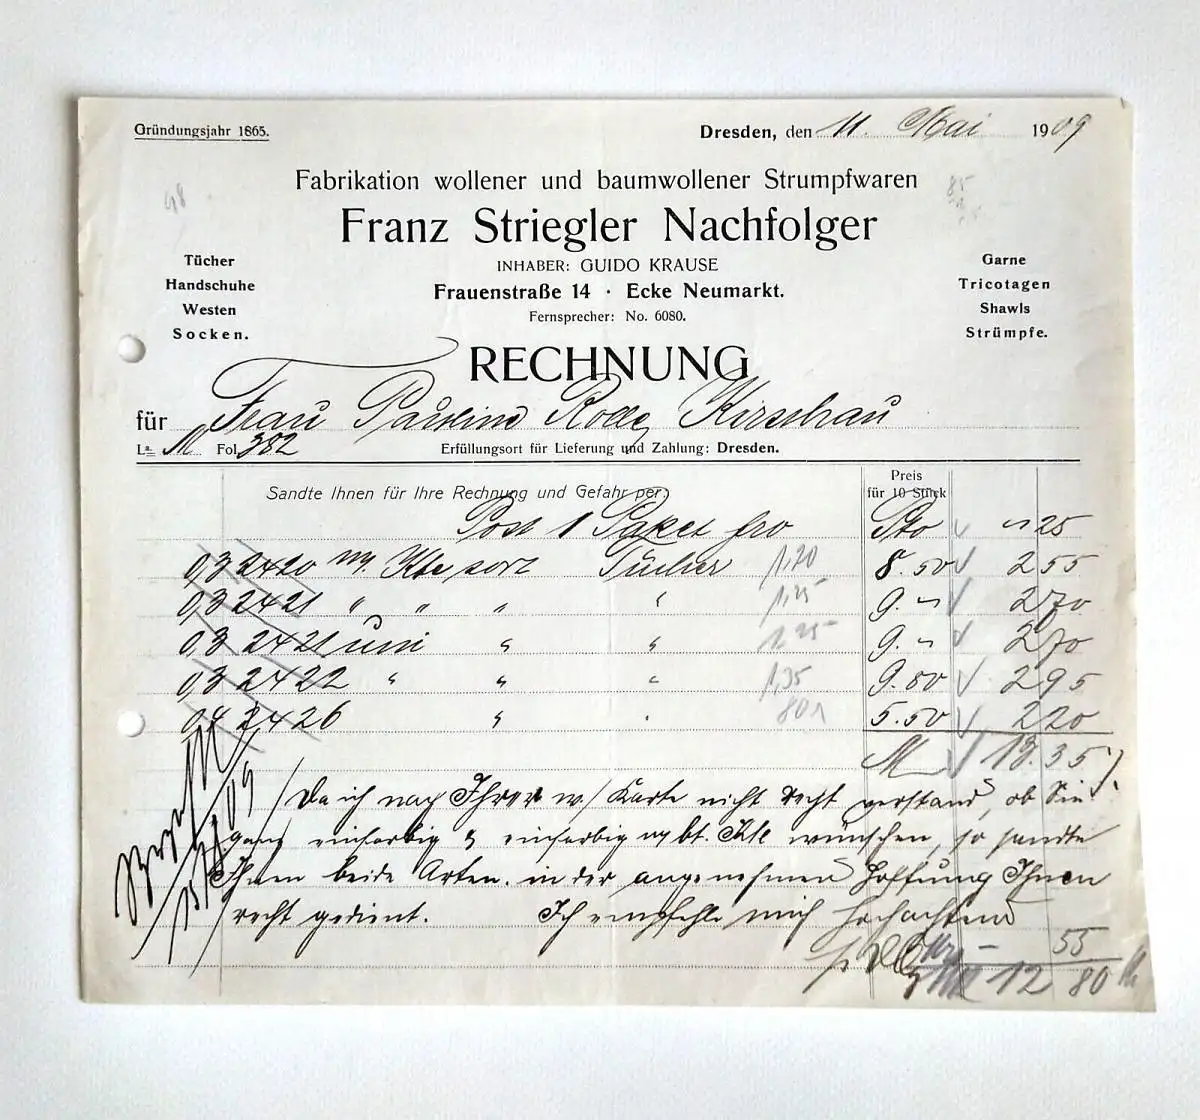 Gründungsjahr 1865.
Dresden, den 11. Mai 1909
Fabrikation wollener und baumwollener Strumpfwaren
Franz Striegler Nachfolger
INHABER: GUIDO KRAUSE
Frauenstraße 14 · Ecke Neumarkt.
Fernsprecher: No. 6080.
Tücher
Handschuhe
Westen
Socken.
Garne
Tricotagen
Shawls
Strümpfe.
RECHNUNG
für Frau Pauline Kirschau
La. M Fol. 382 Erfüllungsort für Lieferung und Zahlung: Dresden.
Sandte Ihnen für Ihre Rechnung und Gefahr per: Preis für 10 Stück
Post 1 Paket fro Pto 25
0,3 2420 Kte sort Tücher 1,20 8.50 2 55
0,3 2421 " " " " 1,25 9.- 2 70
0,3 2421 uni " " 1.25 9.- 2 70
0,3 2422 " " " 1,35 9.80 2 95
04 2426 " " 80 5.50 2 20
M 13.35
Da ich nach Ihrer w/ Karte nicht recht verstand, ob Sie
ganz einfarbig & einfarbig m bt. Kte wünschen, so sandte
Ihnen beide Arten, in der angenehmen Hoffnung Ihnen
recht gedient. Ich empfehle mich hochachtend
55
12 80